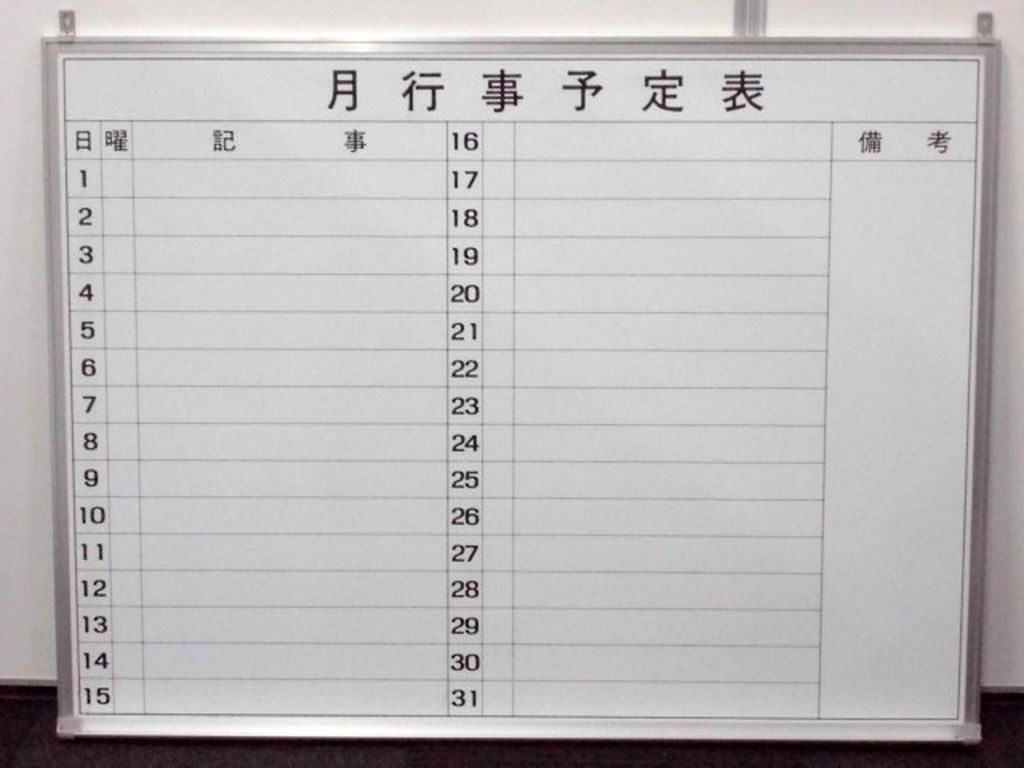 月行事予定表
日 曜 記事
1
2
3
4
5
6
7
8
9
10
11
12
13
14
15
16
17
18
19
20
21
22
23
24
25
26
27
28
29
30
31
備考